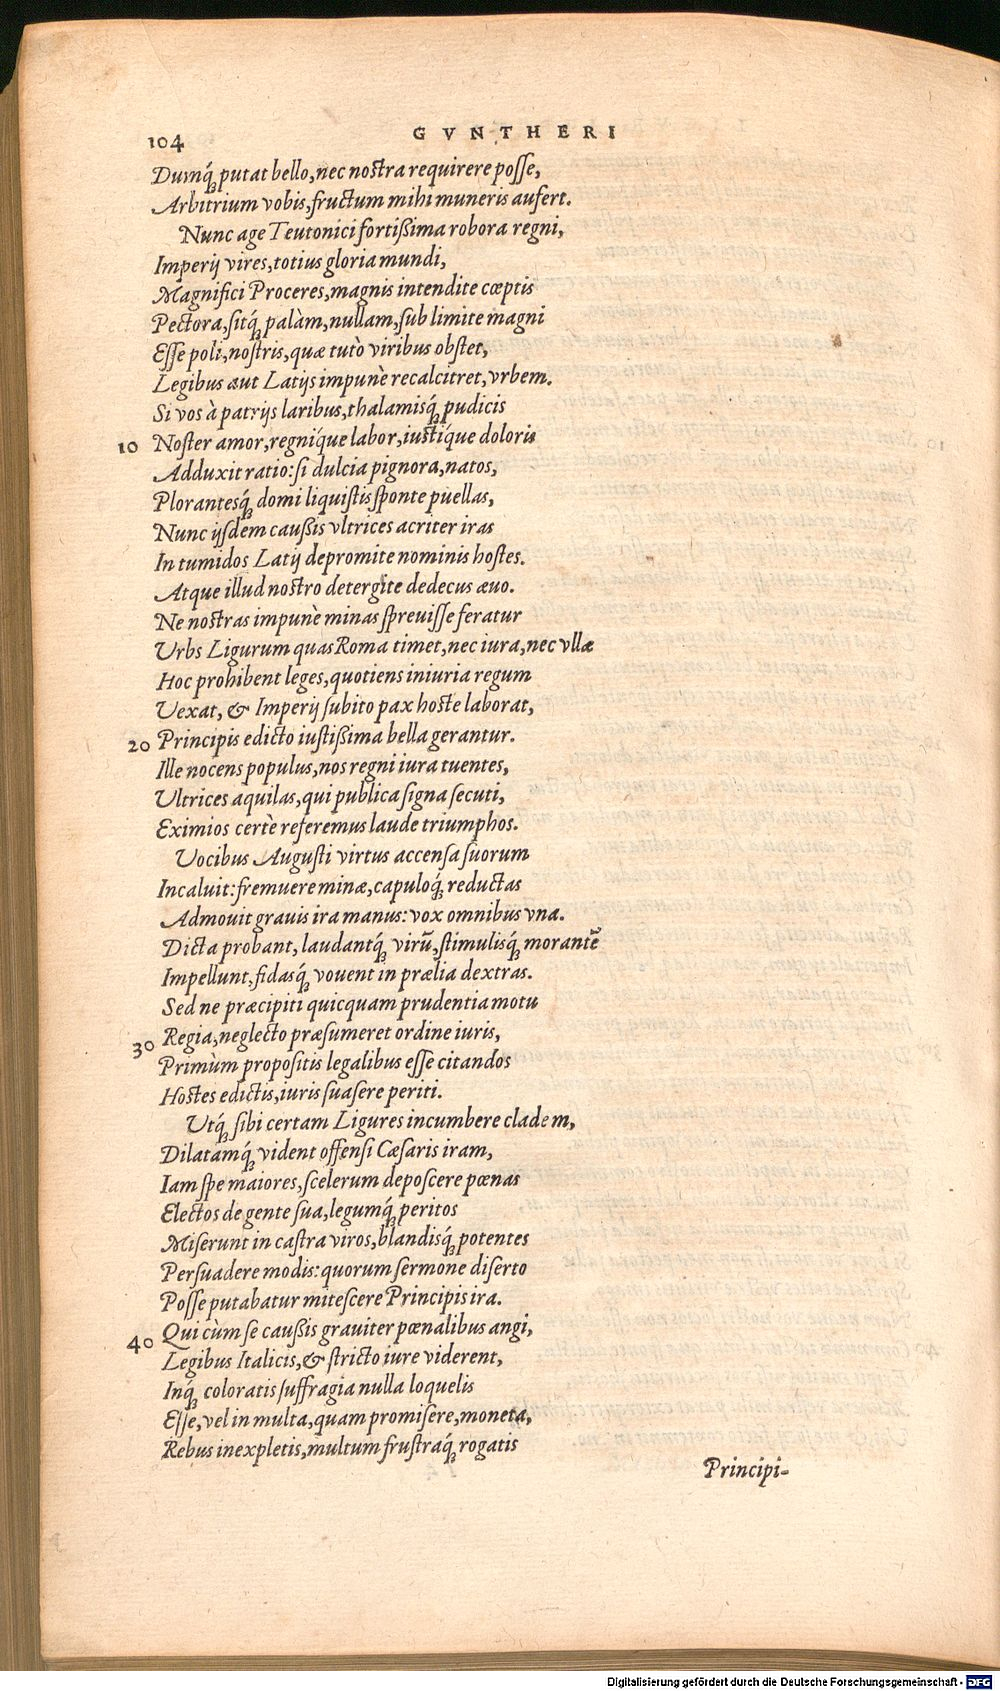 104 GVNTHERI
Dumq́; putat bello, nec nostra requirere posse,
Arbitrium vobis, fructum mihi muneris aufert.
Nunc age Teutonici fortißima robora regni,
Imperij vires, totius gloria mundi,
Magnifici Proceres, magnis intendite cœptis
Pectora, sitq́; palàm, nullam, sub limite magni
Esse poli, nostris, quæ tutò viribus obstet,
Legibus aut Latijs impunè recalcitret, vrbem.
Si vos à patrijs laribus, thalamisq́; pudicis
10 Noster amor, regniq́ue labor, iustiq́ue doloris
Adduxit ratio: si dulcia pignora, natos,
Plorantesq́; domi liquistis sponte puellas,
Nunc ijsdem caußis vltrices acriter iras
In tumidos Latij depromite nominis hostes.
Atque illud nostro detergite dedecus æuo.
Ne nostras impunè minas spreuisse feratur
Urbs Ligurum quas Roma timet, nec iura, nec vllæ
Hoc prohibent leges, quotiens iniuria regum
Uexat, & Imperij subito pax hoste laborat,
20 Principis edicto iustißima bella gerantur.
Ille nocens populus, nos regni iura tuentes,
Ultrices aquilas, qui publica signa secuti,
Eximios certè referemus laude triumphos.
Uocibus Augusti virtus accensa suorum
Incaluit: fremuere minæ, capuloq́; reductas
Admouit grauis ira manus: vox omnibus vna.
Dicta probant, laudantq́; virũ, stimulisq́; morantẽ
Impellunt, fidasq́; vouent in prælia dextras.
Sed ne præcipiti quicquam prudentia motu
30 Regia, neglecto præsumeret ordine iuris,
Primùm propositis legalibus esse citandos
Hostes edictis, iuris suasere periti.
Utq́; sibi certam Ligures incumbere cladem,
Dilatamq́; vident offensi Cæsaris iram,
Iam spe maiores, scelerum deposcere pœnas
Electos de gente sua, legumq́; peritos
Miserunt in castra viros, blandisq́; potentes
Persuadere modis: quorum sermone diserto
Posse putabatur mitescere Principis ira.
40 Qui cùm se caußis grauiter pœnalibus angi,
Legibus Italicis, & stricto iure viderent,
Inq́; coloratis suffragia nulla loquelis
Esse, vel in multa, quam promisere, moneta,
Rebus inexpletis, multum frustraq́; rogatis
Principi-
Digitalisierung gefördert durch die Deutsche Forschungsgemeinschaft - DFG